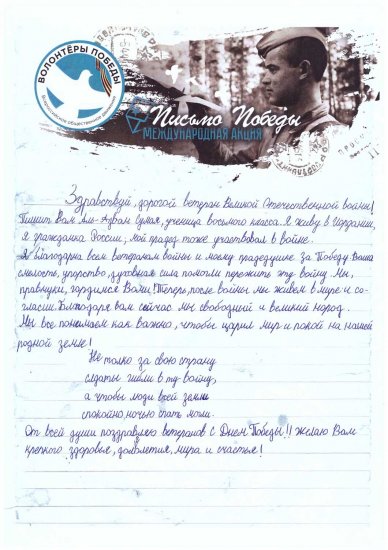 ВОЛОНТЁРЫ ПОБЕДЫ
Всероссийское общественное движение
Письмо Победы
МЕЖДУНАРОДНАЯ АКЦИЯ
Здравствуй, дорогой ветеран Великой Отечественной войны!
Пишит Вам Аль-Аззам Сумая, ученица восьмого класса. Я живу в Иордании,
я гражданка России, мой прадед тоже участвовал в войне.
Я благодарна всем ветеранам войны и моему прадедушке за Победу. Ваша
смелость, упорство, духовная сила помогли пережить эту войну. Мы,
правнуки, гордимся Вами! Теперь, после войны мы живем в мире и со-
гласии. Благодаря вам сейчас мы свободный и великий народ.
Мы все понимаем как важно, чтобы царил мир и покой на нашей
родной земле!
Не толко за свою страну
слдаты гибли в ту войну,
а чтобы люди всей земли
спокойно ночью спать могли.
От всей души поздравляю ветеранов с Днем Победы!! Желаю Вам
крепкого здоровья, долголетия, мира и счастья!